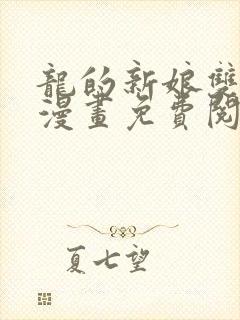 龍的新娘雙
漫畫免費閱
夏七望